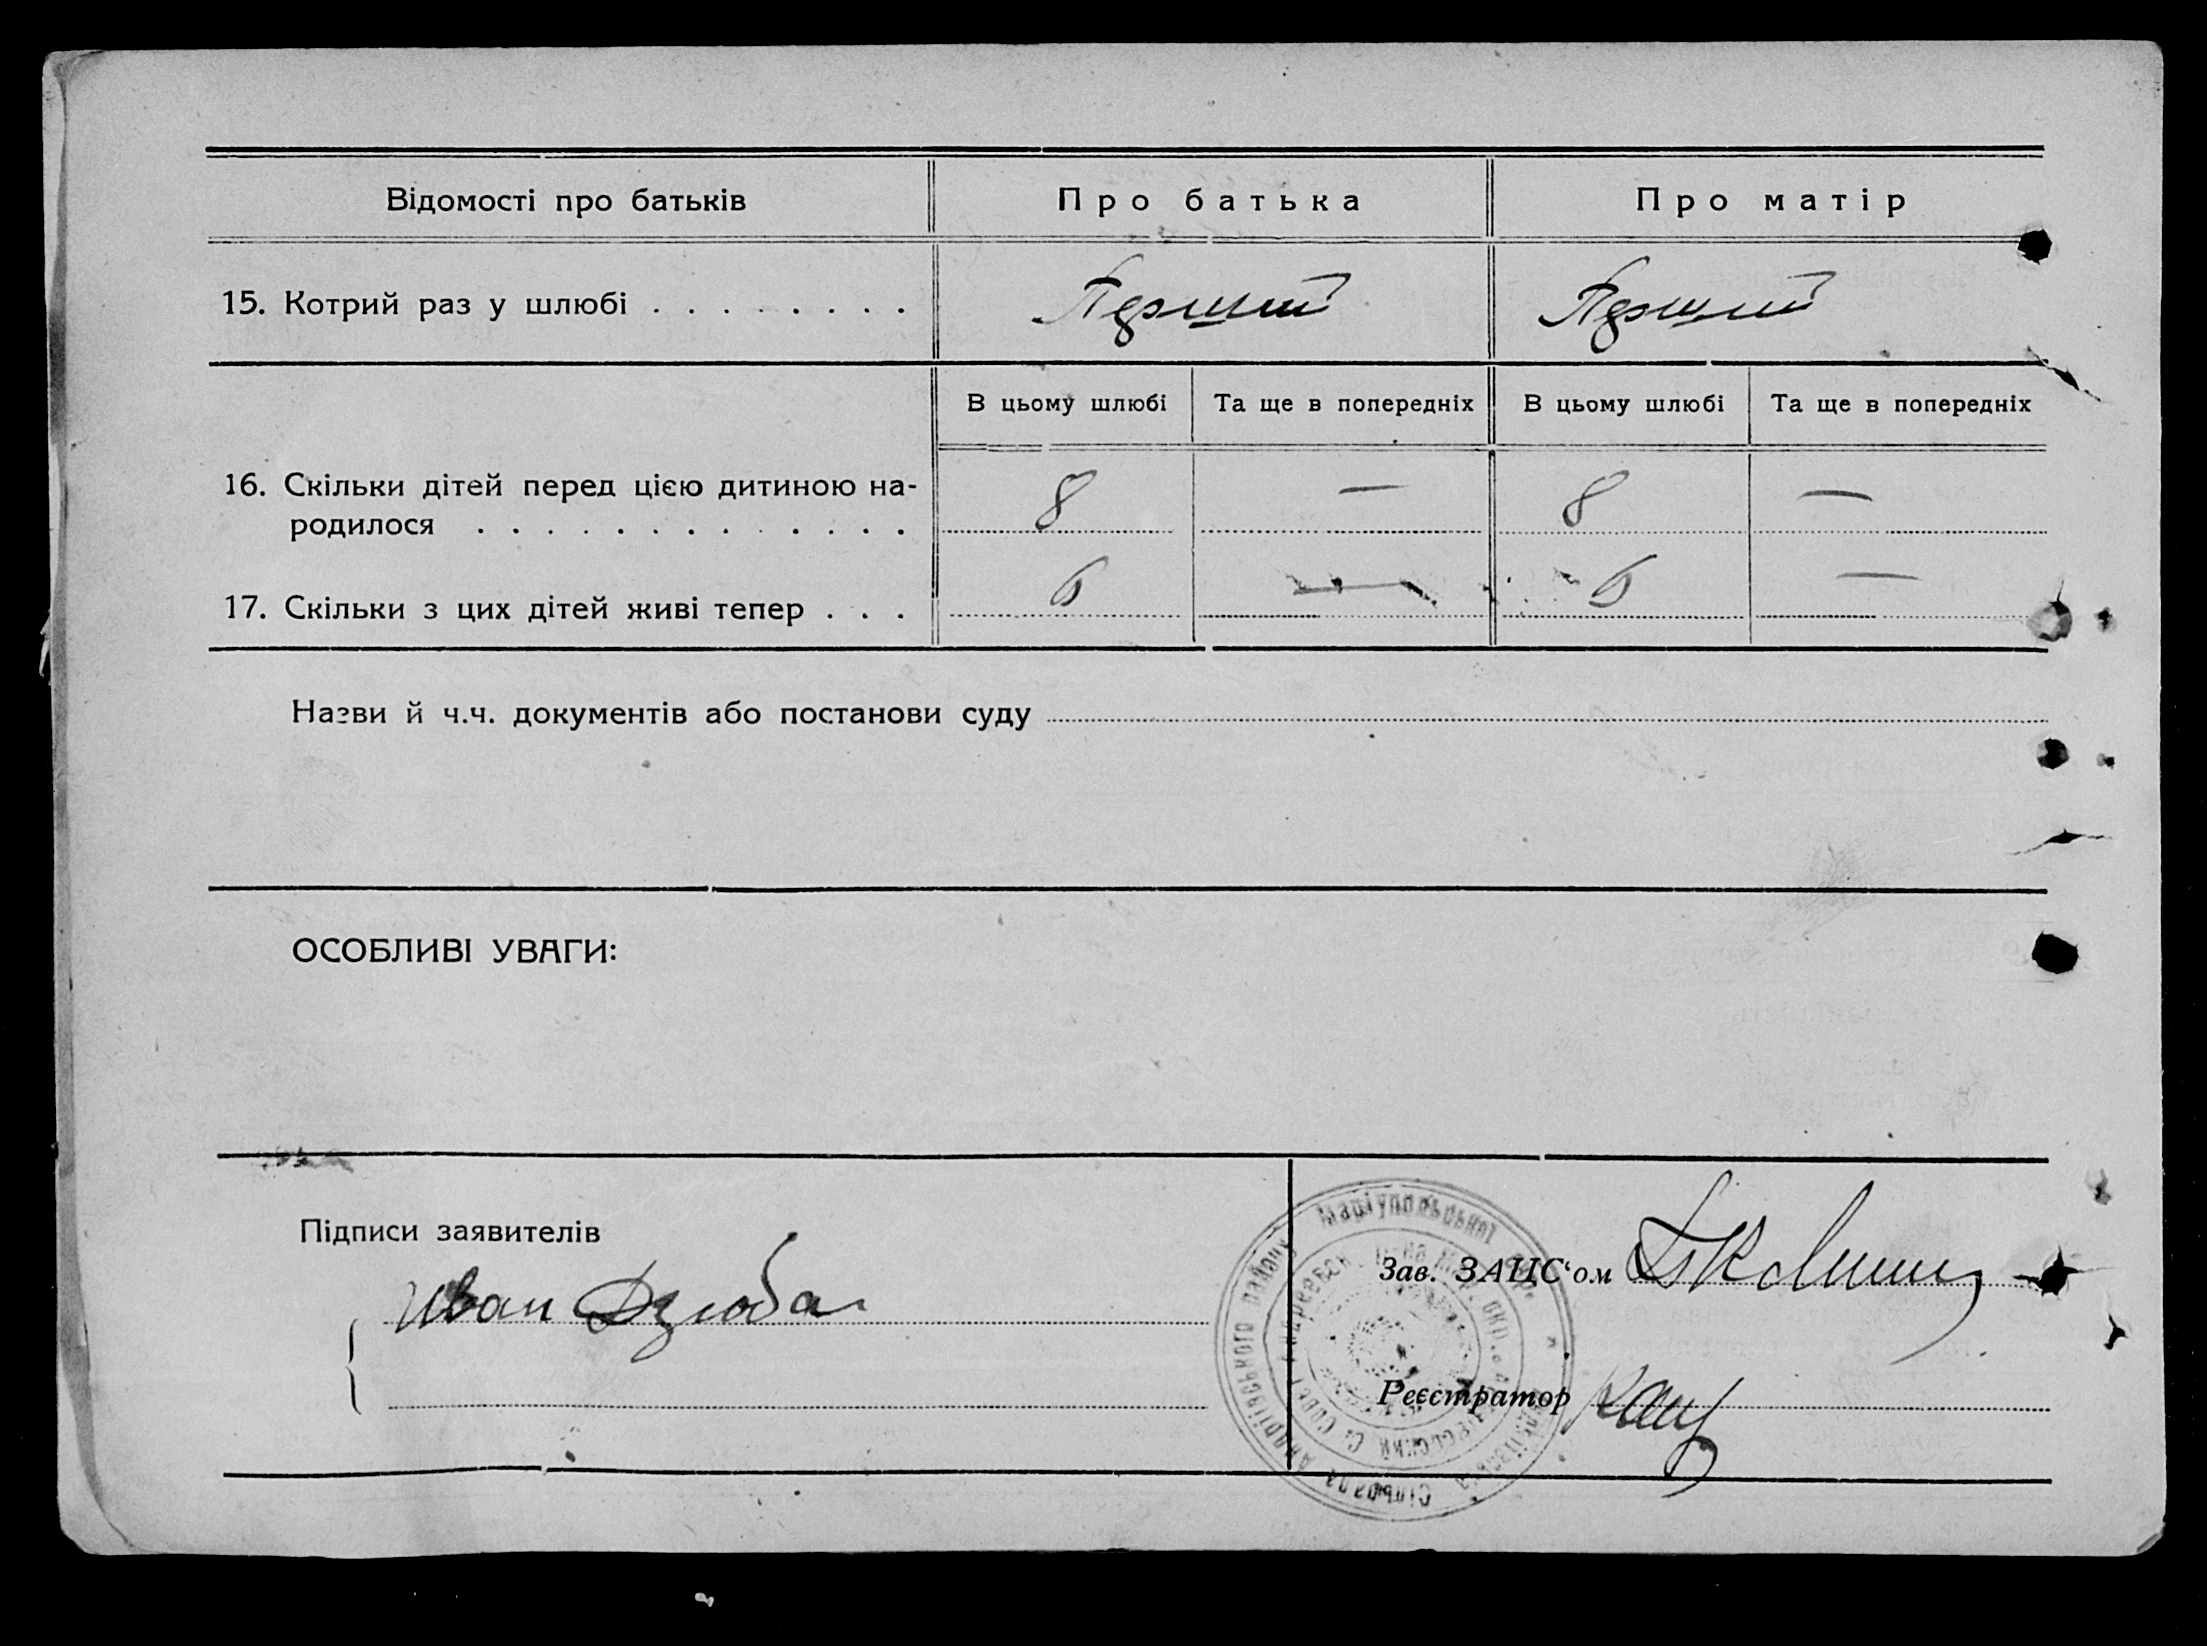 Відомості про батьків
Про батька
Про матір
15. Котрий раз у шлюбі . . . . . . . .
Перший
Перший
В цьому шлюбі
Та ще в попередніх
В цьому шлюбі
Та ще в попередніх
16. Скільки дітей перед цією дитиною на-
родилося . . . . . . . . . . . . .
8
—
8
—
17. Скільки з цих дітей живі тепер . . .
6
—
6
—
Назви й ч.ч. документів або постанови суду
ОСОБЛИВІ УВАГИ:
Підписи заявителів
Иван Дзюба
Зав. ЗАЦС‘ом
Реєстратор
Маріупольської
району
Сільрада